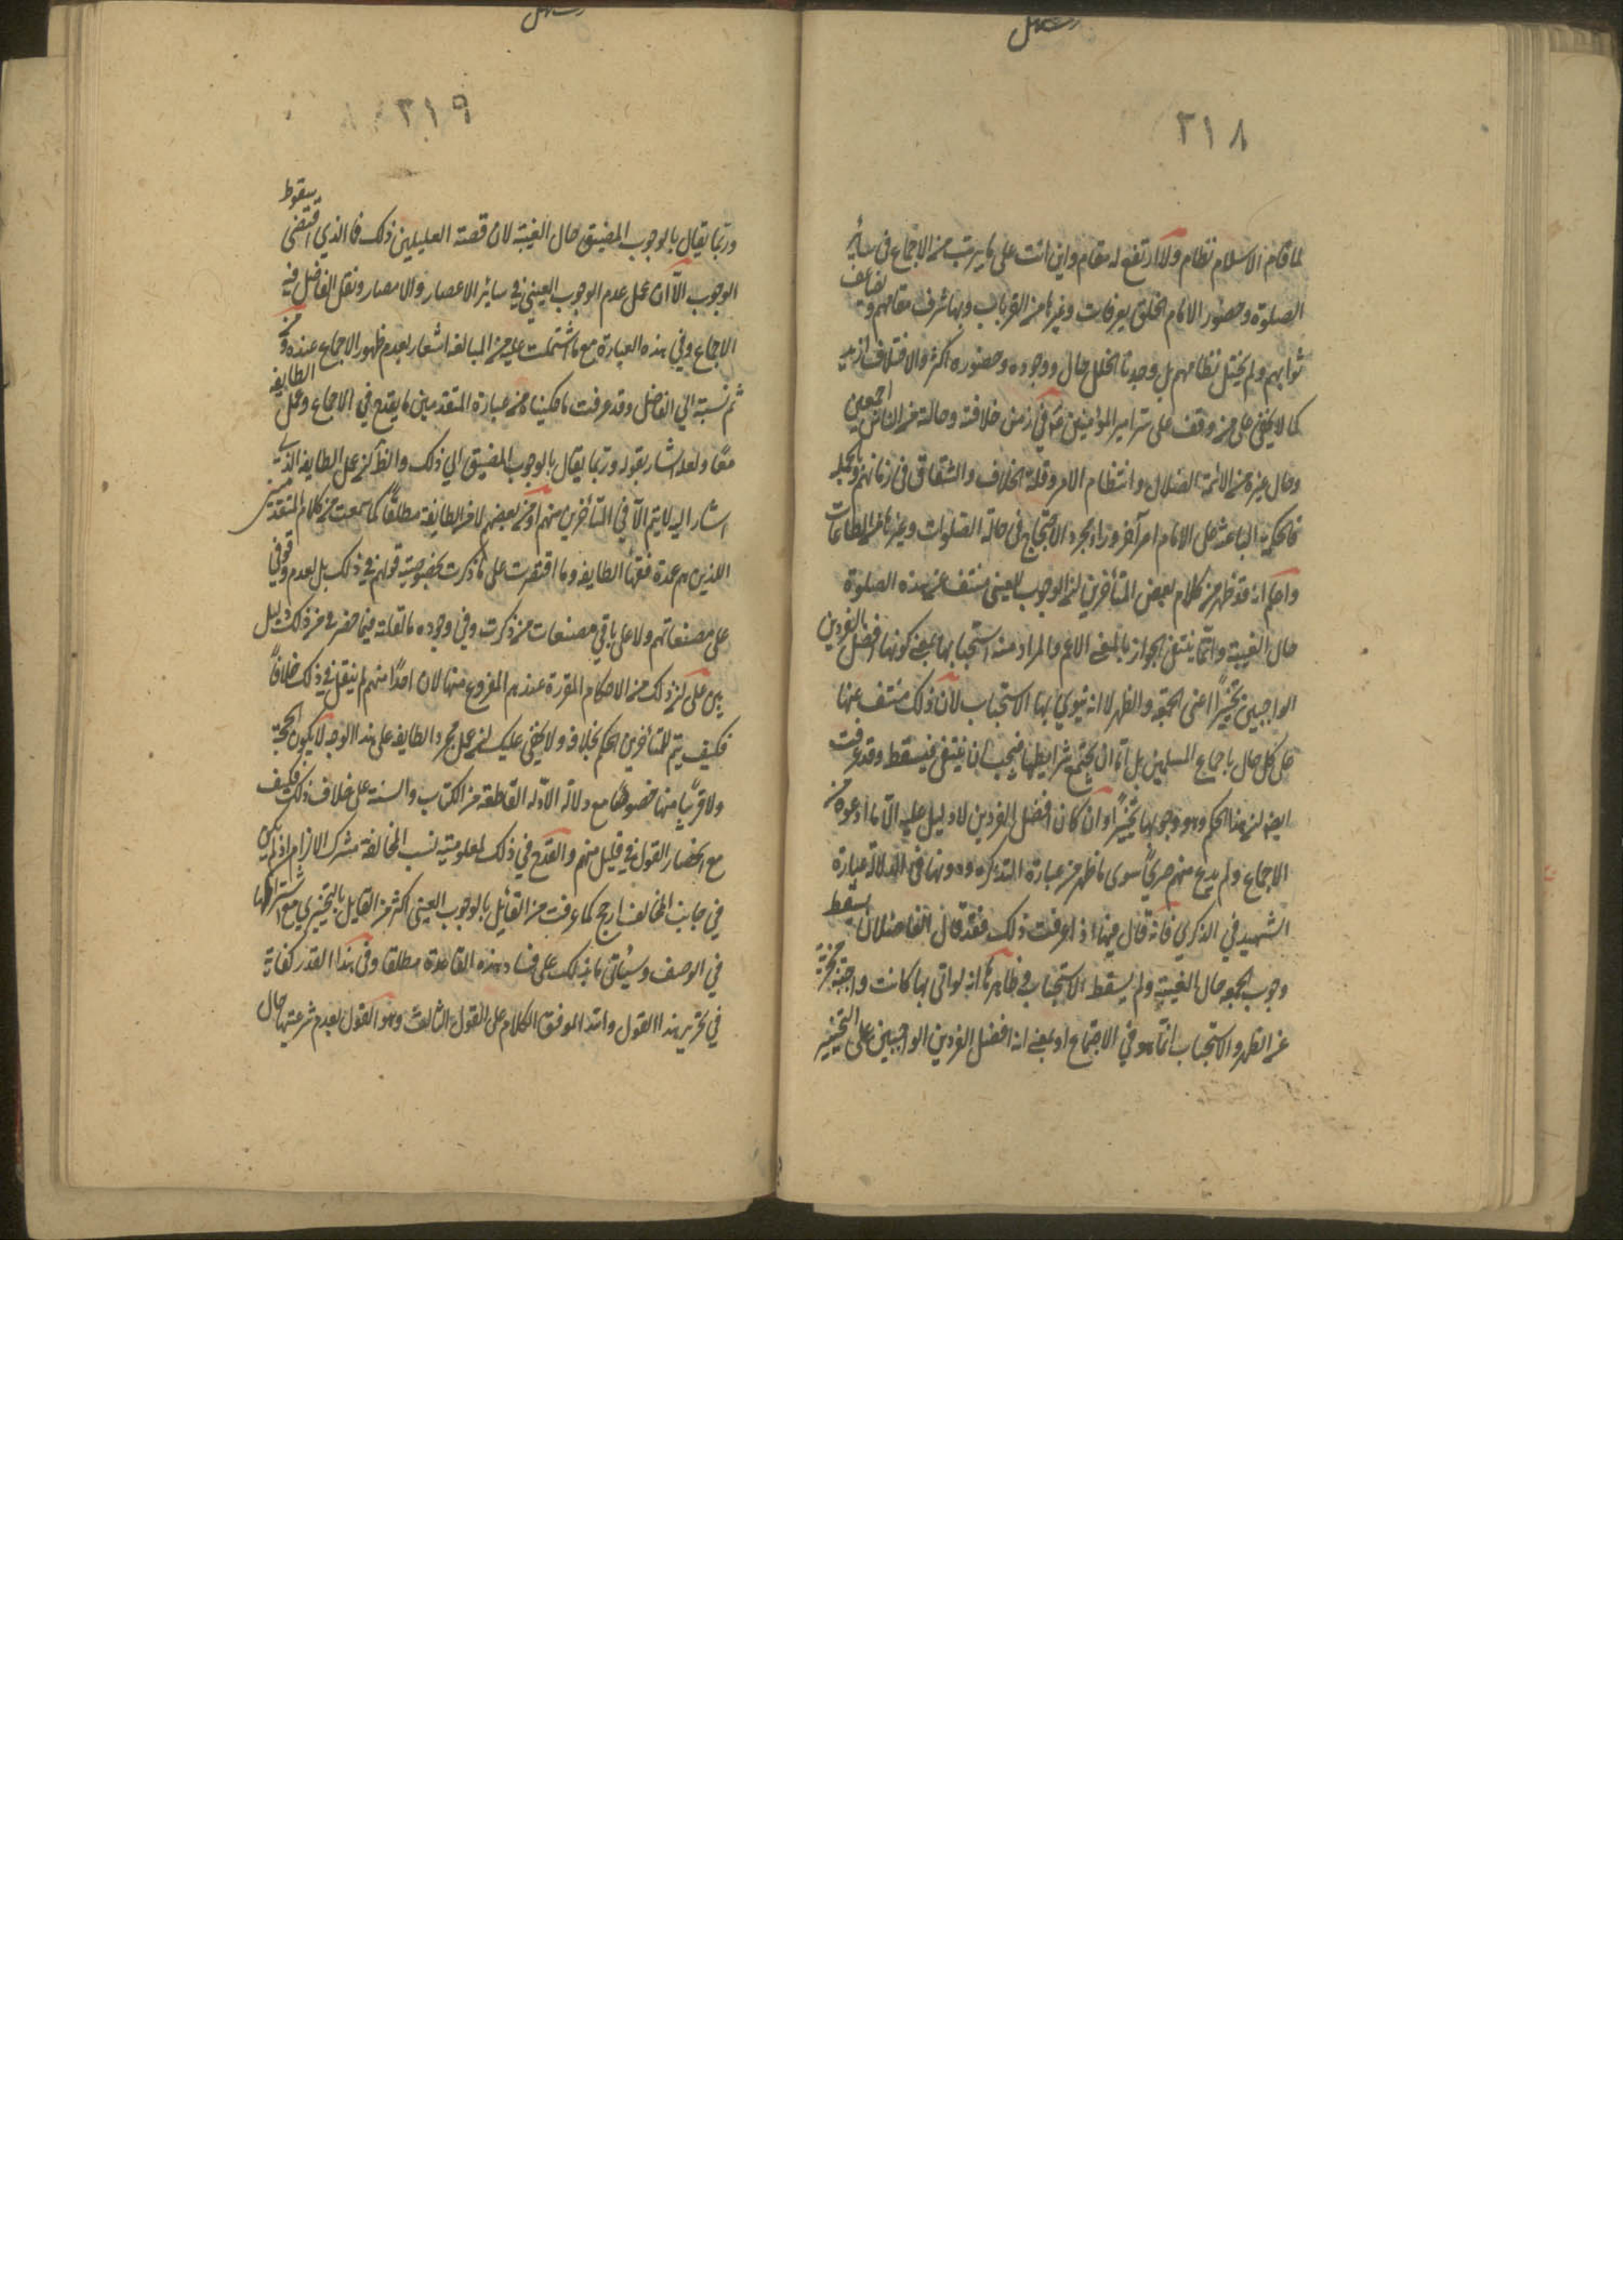 ٣١٨
لما قام الاسلام نظام ولا ارتفع له مقام واين انت على ما يترتب من الاجتماع في ساير
الصلوة وحضور الامام الخلق بعرفات وغيرها من القربات وبها شرف مقامهم وتضاعف
ثوابهم ولم يختل نظامهم بل وجدنا الخلل حال ووجوده وحضوره اكثر والاختلاف ازيد
كما لا يخفى على من وقف على سيرة امير المؤمنين ع في زمن خلافته وحاله مع الناس اجمعين
وحال غيره من الائمة الضلال وانتظام الامر وقلة الخلاف والشقاق في زمانهم وبالجملة
فالحكمة الباعثة على الامام امر آخر وراء مجرد الاجتماع في حالة الصلوات وغيرها من الطاعات
واعلم انه قد ظهر من كلام بعض المتأخرين ان الوجوب العيني منتف عن هذه الصلوة
حال الغيبة وانما ينتفي الجواز بالمعنى الاعم والمراد منه استحبابها بمعنى كونها افضل الفردين
الواجبين تخييرًا اعنى الجمعة والظهر لا انه ينوي بها الاستحباب لان ذلك منتف عنها
على كل حال باجماع المسلمين بل اما ان يجتمع شرايطها فيجب او ينتفى فيسقط وقد عرفت
ايضا ان هذا الحكم وهو وجوبها تخييرًا وان كان افضل الفردين لا دليل عليه الا ما ادعوه من
الاجماع ولم يدع منهم صريحًا سوى ما ظهر من عبارة التذكرة ودونها في الدلالة عبارة
الشهيد في الذكرى فانه قال فيها اذا عرفت ذلك فقد قال الفاضلان يسقط
وجوب الجمعة حال الغيبة ولم يسقط الاستحباب وظاهرهما انه لو اتى بها كانت واجبة مجزية
عن الظهر والاستحباب انما هو في الاجتماع او بمعنى انه افضل الفردين الواجبين على التخيير
٣١٩
وربما يقال بالوجوب المضيق حال الغيبة لان قضية التعليلين ذلك فما الذي اقتضى سقوط
الوجوب الا ان عمل عدم الوجوب العيني في ساير الاعصار والامصار ونقل الفاضل فيه
الاجماع وفي هذه العبارة مع ما اشتملت عليه من المبالغة اشعار بعدم ظهور الاجماع عنده ومن
ثم نسبة الى الفاضل وقد عرفت ما حكيناه من عبارة المتقدمين ما يقدح في الاجماع وعمل الطايفة
معًا ولعله اشار بقوله وربما يقال بالوجوب المضيق الى ذلك والنظر عمل الطايفة الذي
اشار اليه لا يتم الا في المتأخرين منهم او من بعضهم لا من الطايفة مطلقًا كما سمعت من كلام المتقدمين
الذين هم عمدة فقهاء الطايفة وما اقتصرت على ما ذكرت لخصوصية قولهم في ذلك بل لعدم وقوفي
على مصنفاتهم ولا على باقي مصنفات من ذكرت وفي وجوده ما نقلته فيما حضرني من ذلك دليل
بين على ان ذلك من الاحكام المقررة عندهم المفروغ منها لان احدًا منهم لم ينقل في ذلك خلافًا
فكيف يتم للمتأخرين الحكم بخلافه ولا يخفى عليك ان عمل مجرد الطايفة على هذا الوجه لا يكون حجة
ولا قريبًا منها خصوصًا مع دلالة الادلة القاطعة من الكتاب والسنة على خلاف ذلك فكيف
مع انحصار القول في قليل منهم والقدح في ذلك لمعلومية نسب المخالفة مشترك الالزام اذ لم يكن
في جانب المخالف ارجح كما عرفت من القائل بالوجوب العيني اكثر من القايل بالتخييري مع اشتراكهما
في الوصف وسيأتي ما ينبهك على فساد هذه القاعدة مطلقا وفي هذا القدر كفاية
في تحرير هذا القول والله الموفق الكلام على القول الثالث وهو القول بعدم شرعيتها حال